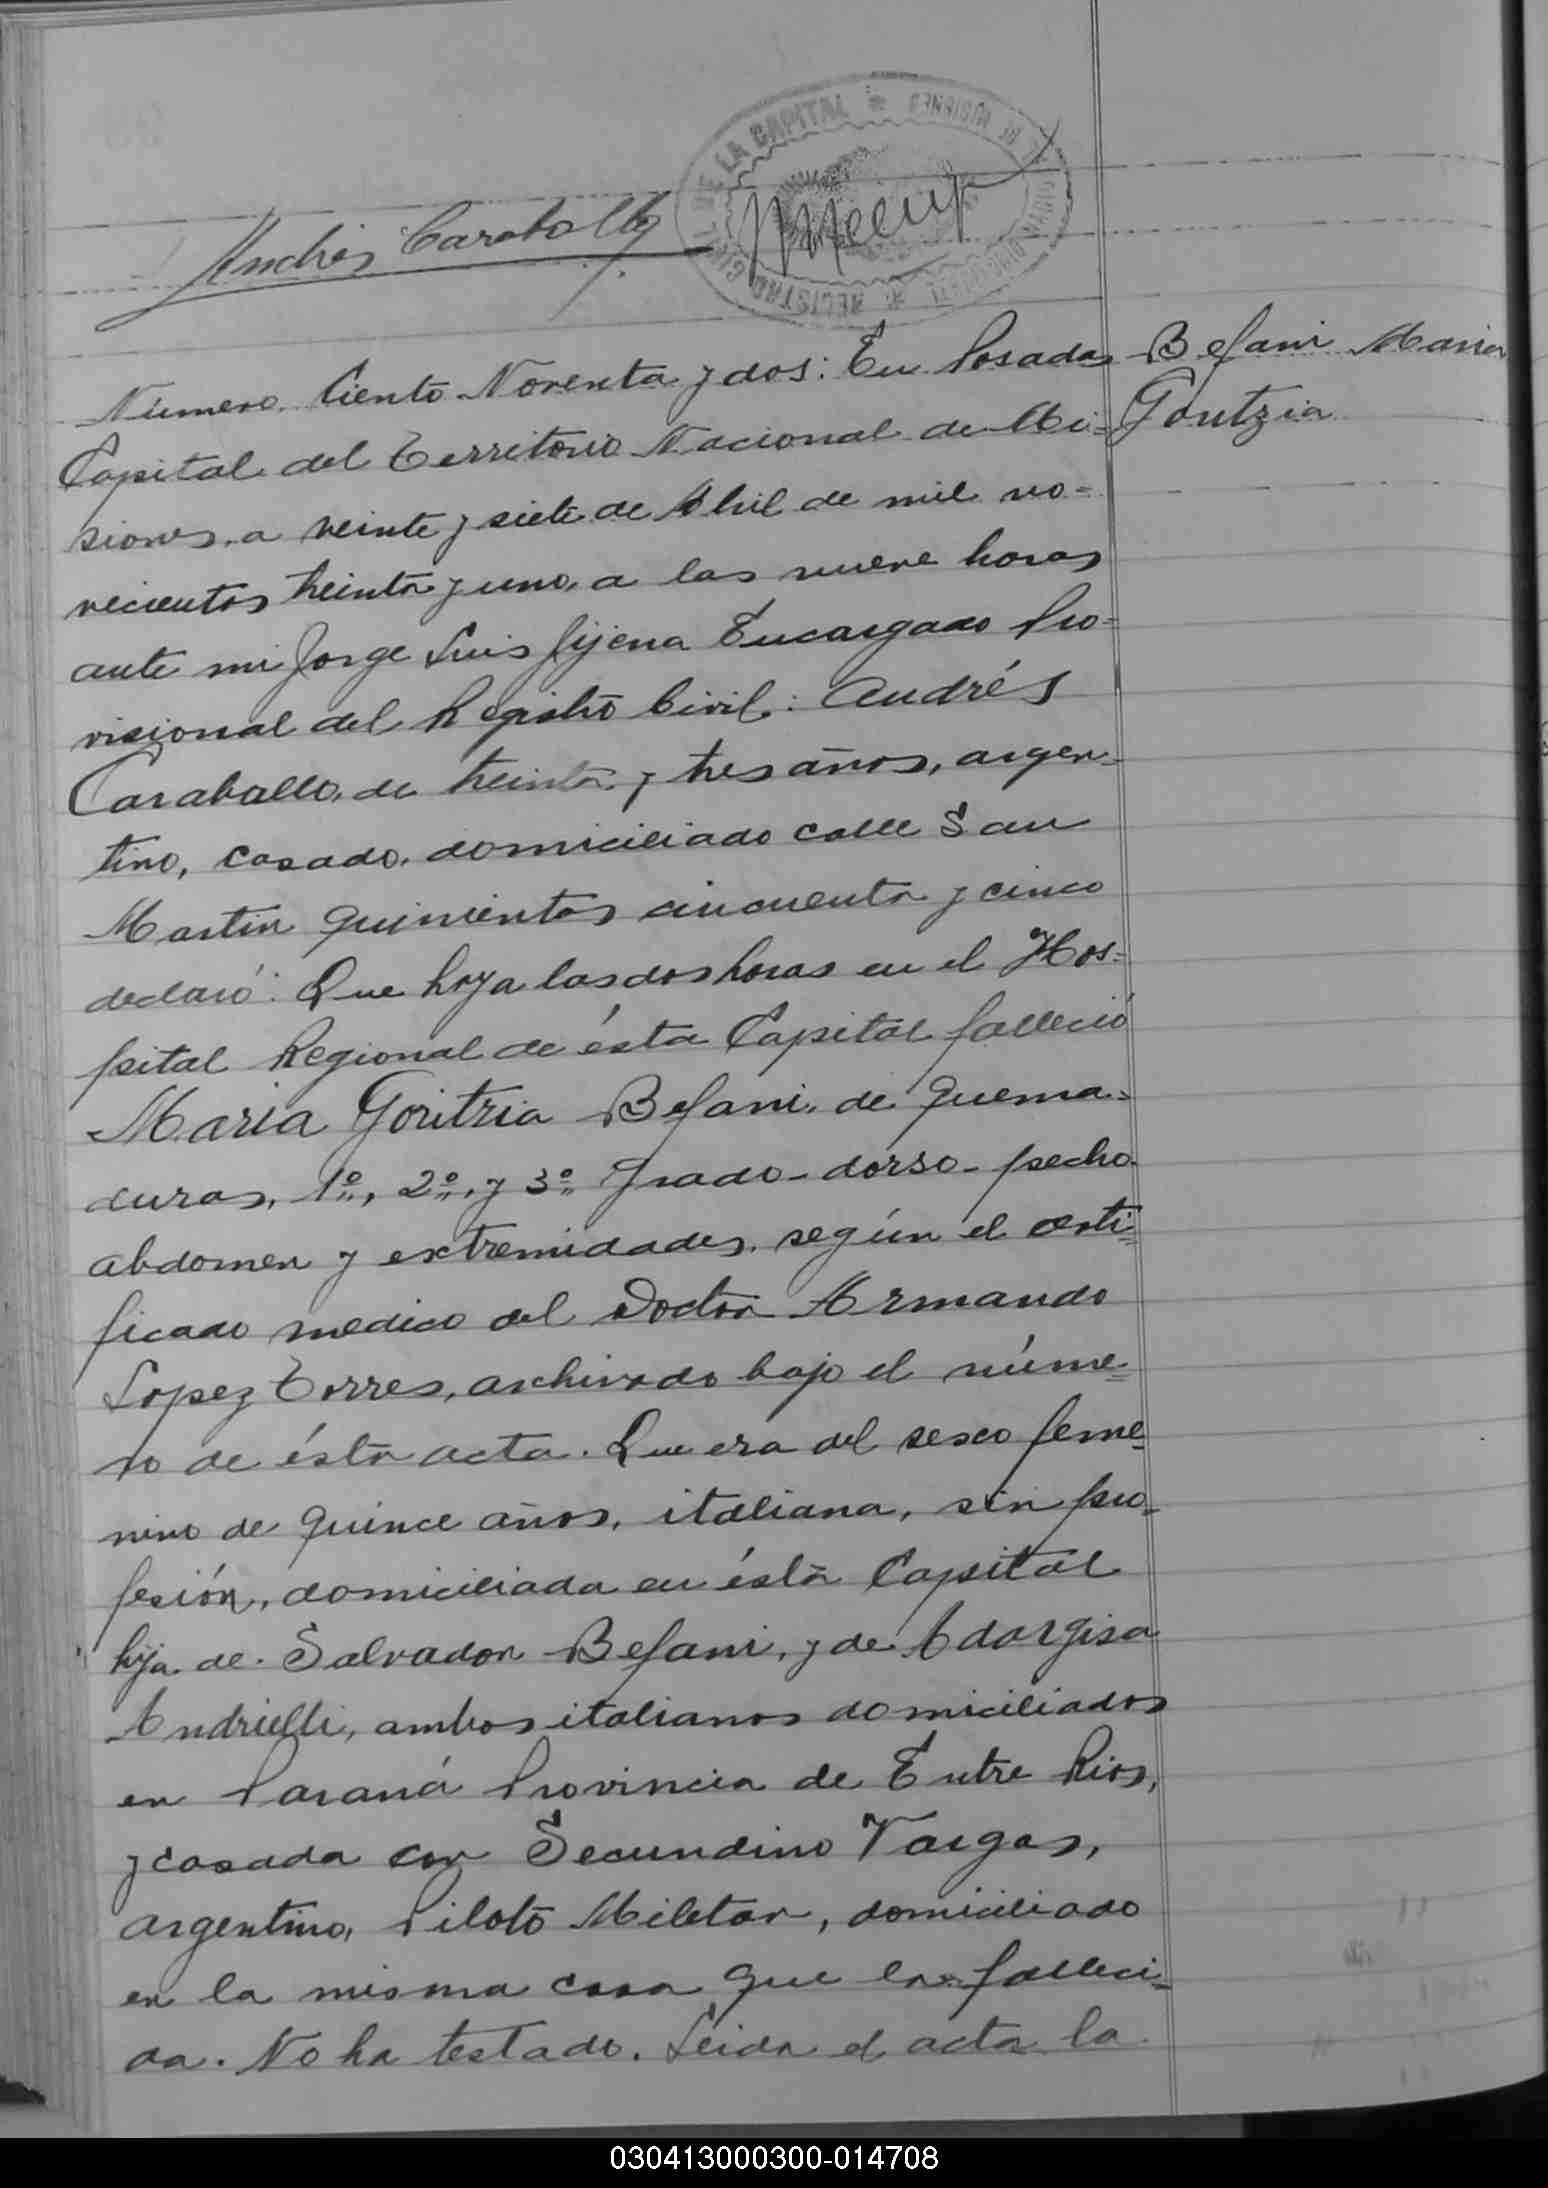 Andrés Caraballo
REGISTRO CIVIL DE LA CAPITAL * DE MISIONES *
Número Ciento Noventa y dos: En Posadas
Befani Maria
Goritzia
Capital del Territorio Nacional de Mi=
siones, a veinte y siete de Abril de mil no=
vecientos treinta y uno, a las nueve horas
ante mi Jorge Luis Jijena Encargado Pro=
visional del Registro Civil: Andrés
Caraballo, de treinta y tres años, argen=
tino, casado, domiciliado calle San
Martin quinientos cincuenta y cinco
declaró: Que hoy a las dos horas en el Hos=
pital Regional de ésta Capital falleció
Maria Goritzia Befani, de quema=
duras, 1º, 2º, y 3º grado-dorso-pecho-
abdomen y extremidades, según el certi=
ficado medico del Doctor Armando
Lopez Torres, archivado bajo el núme=
ro de ésta acta. Que era del sexo feme=
nino de quince años, italiana, sin pro=
fesión, domiciliada en ésta Capital
hija de Salvador Befani, y de Adargisa
Andrielli, ambos italianos domiciliados
en Paraná Provincia de Entre Rios,
y casada con Secundino Vargas,
argentino, Piloto Militar, domiciliado
en la misma casa que la falleci=
da. No ha testado. Leida el acta la
030413000300-014708